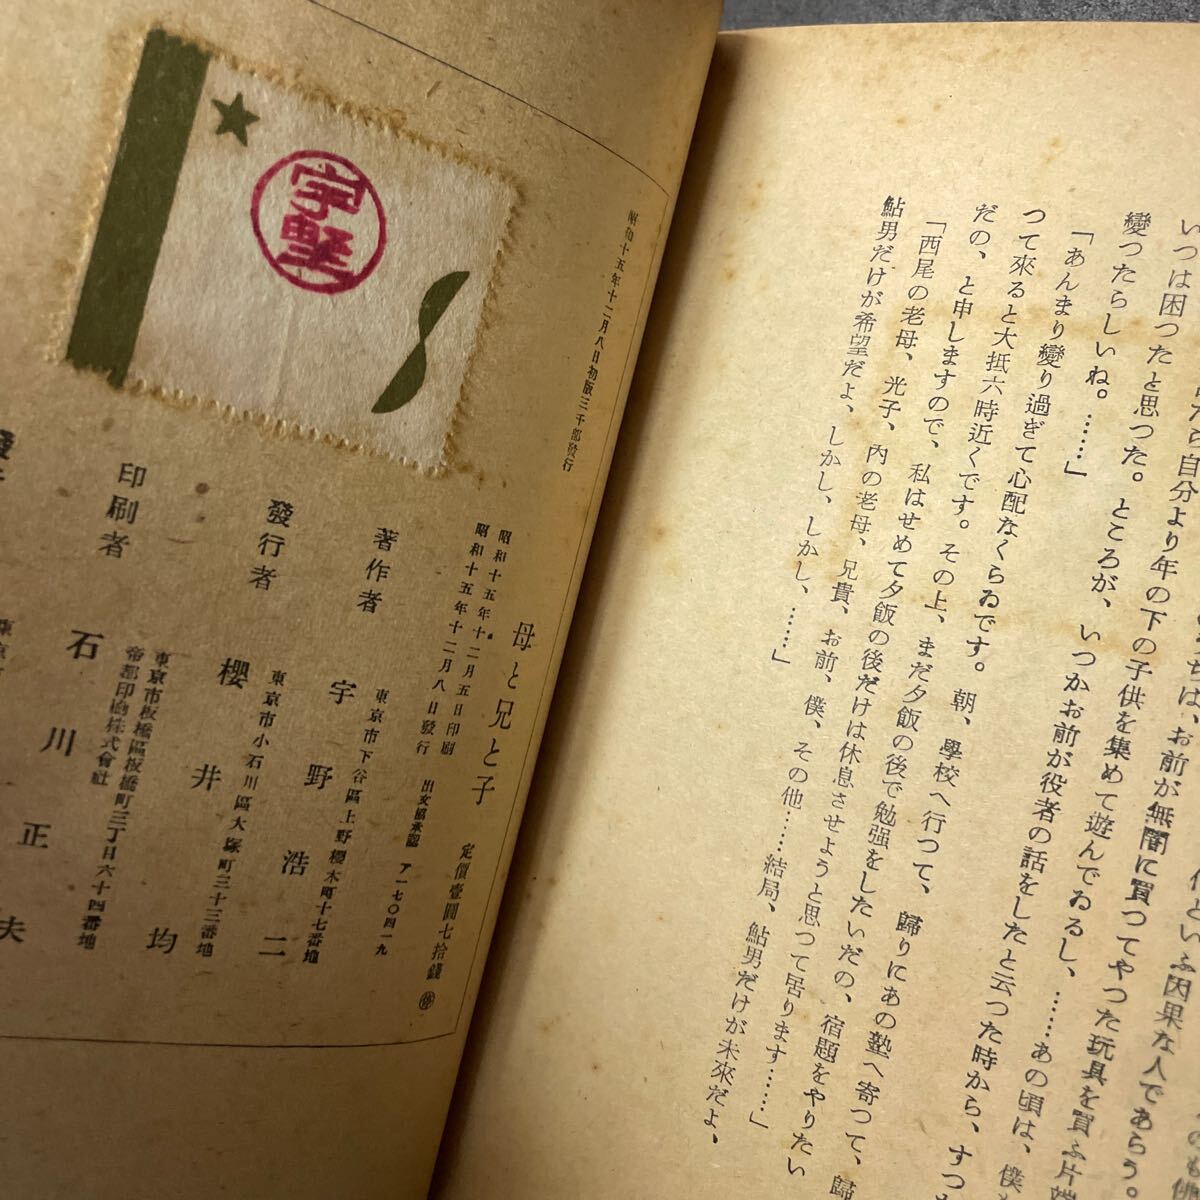 いつは困つたと思つた。ところが、いつかお前が役者の話をしたと云つた時から、すつ
變つたらしいね。……」
「あんまり變り過ぎて心配なくらゐです。朝、學校へ行つて、歸りにあの塾へ寄つて、歸
つて來ると大抵六時近くです。その上、まだ夕飯の後で勉强をしたいだの、宿題をやりたい
だの、と申しますので、私はせめて夕飯の後だけは休息させようと思つて居ります……」
「西尾の老母、光子、內の老母、兄貴、お前、僕、その他……結局、鮎男だけが未來だよ、
鮎男だけが希望だよ、しかし、しかし、……」
昭和十五年十二月八日初版三千部發行
母と兄と子
定價壹圓七拾錢
昭和十五年十二月五日印刷
昭和十五年十二月八日發行
出文協承認 ア一七〇四一九
東京市下谷區上野櫻木町十七番地
著作者 宇野浩二
東京市小石川區大塚町三十三番地
發行者 櫻井均
東京市板橋區板橋町三丁目六十四番地
帝都印刷株式會社
印刷者 石川正夫